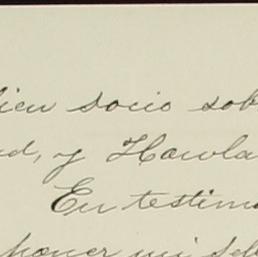 bien socio sob
d, y Howla
En testim
poner mi sel